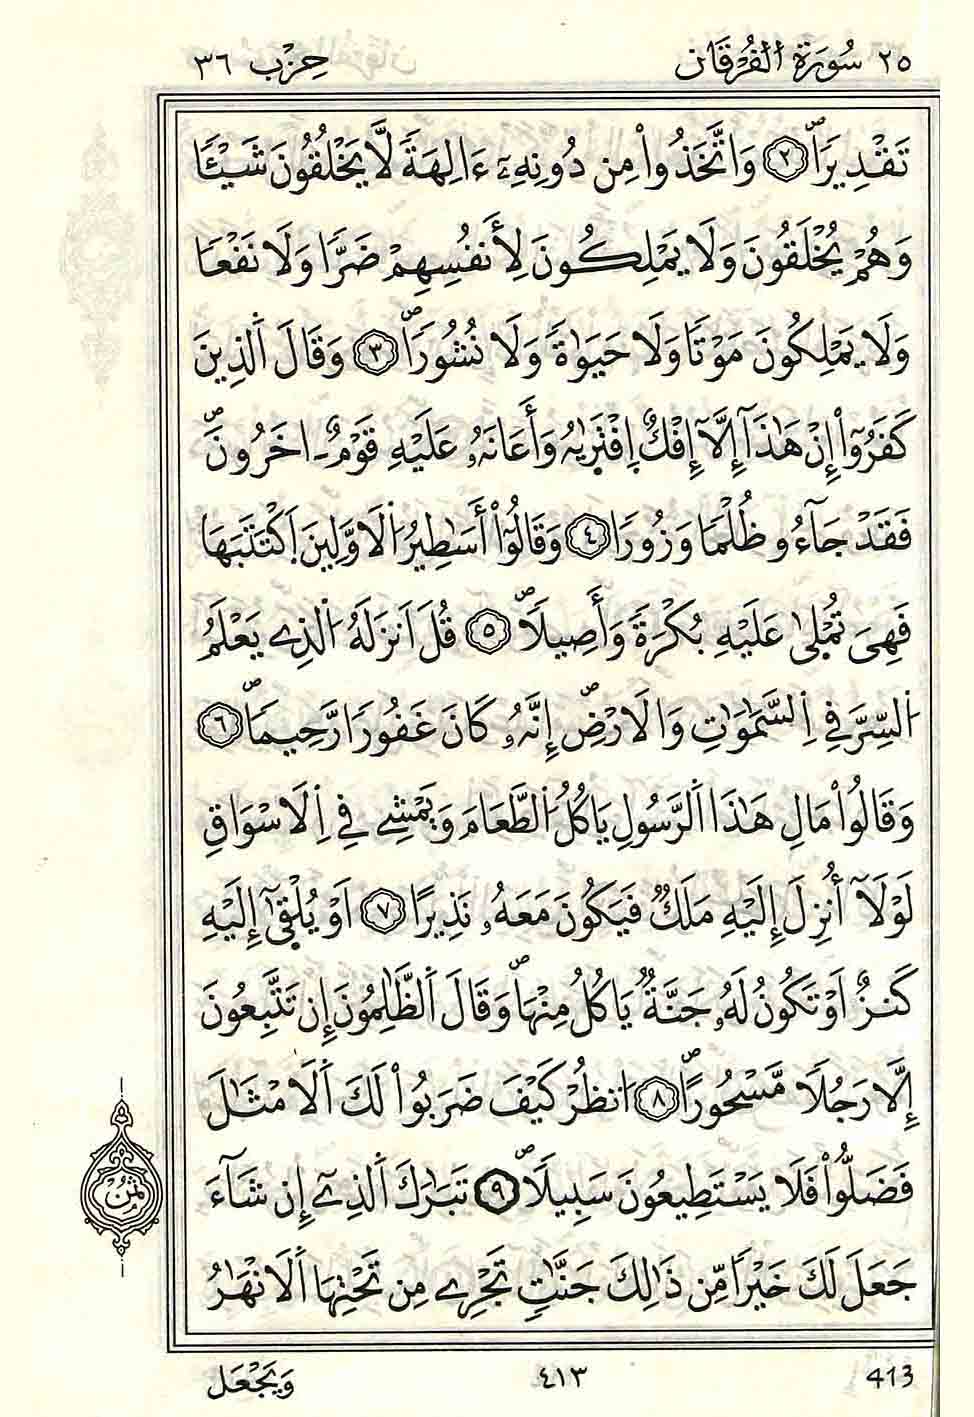 ٢٥ سُورَةُ الْفُرْقَانِ حِزْب ٣٦
تَقْدِيراًۖ ۝٢ وَاتَّخَذُواْ مِن دُونِهِۦٓ ءَالِهَةٗ لَّا يَخْلُقُونَ شَيْـٔاٗ
وَهُمْ يُخْلَقُونَ وَلَا يَمْلِكُونَ لِأَنفُسِهِمْ ضَرّاٗ وَلَا نَفْعاٗ
وَلَا يَمْلِكُونَ مَوْتاٗ وَلَا حَيَوٰةٗ وَلَا نُشُوراٗۖ ۝٣ وَقَالَ اَ۬لذِينَ
كَفَرُوٓاْ إِنْ هَٰذَآ إِلَّآ إِفْكٌ اِ۪فْتَر۪ىٰهُ وَأَعَانَهُۥ عَلَيْهِ قَوْمٌ ـ اخَرُونَۖ
فَقَدْ جَآءُو ظُلْماٗ وَزُوراٗ ۝٤ وَقَالُوٓاْ أَسَٰطِيرُ اُ۬لَاوَّلِينَ اَ۪كْتَتَبَهَا
فَهِيَ تُمْل۪ىٰ عَلَيْهِ بُكْرَةٗ وَأَصِيلاٗۖ ۝٥ قُلَ اَنزَلَهُ اُ۬لذِے يَعْلَمُ
اُ۬لسِّرَّ فِے اِ۬لسَّمَٰوَٰتِ وَالَارْضِۖ إِنَّهُۥ كَانَ غَفُوراٗ رَّحِيماٗۖ ۝٦
وَقَالُواْ مَالِ هَٰذَا اَ۬لرَّسُولِ يَاكُلُ اُ۬لطَّعَامَ وَيَمْشِے فِے اِ۬لَاسْوَاقِ
لَوْلَآ أُنزِلَ إِلَيْهِ مَلَكٌ فَيَكُونَ مَعَهُۥ نَذِيراً ۝٧ اَوْ يُلْق۪ىٰٓ إِلَيْهِ
كَنزٌ اَوْ تَكُونُ لَهُۥ جَنَّةٌ يَاكُلُ مِنْهَاۖ وَقَالَ اَ۬لظَّٰلِمُونَ إِن تَتَّبِعُونَ
إِلَّا رَجُلاٗ مَّسْحُوراًۖ ۝٨ اُ۟نظُرْ كَيْفَ ضَرَبُواْ لَكَ اَ۬لَامْثَٰلَ
فَضَلُّواْ فَلَا يَسْتَطِيعُونَ سَبِيلاٗۖ ۝٩ تَبَٰرَكَ اَ۬لذِےٓ إِن شَآءَ
ثُمُن
جَعَلَ لَكَ خَيْراٗ مِّن ذَٰلِكَ جَنَّٰتٖ تَجْرِے مِن تَحْتِهَا اَ۬لَانْهَٰرُ
413 ٤١٣ وَيَجْعَل